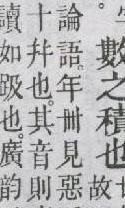 數之積也故
論語年卌見惡
十幷也其音則
讀如趿也廣韵